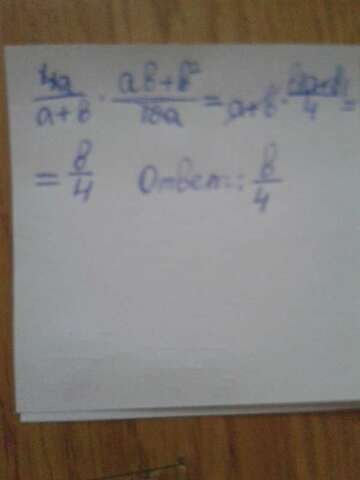 4a/a+b · ab+b²/16a = a+b · b(a+b)/4 =
= b/4 Ответ: b/4